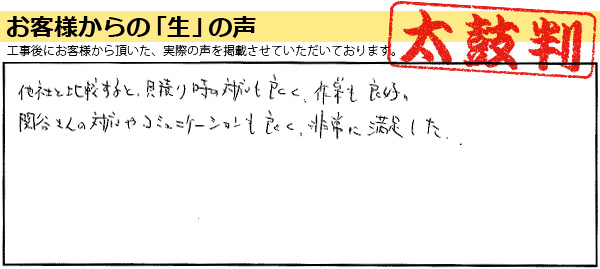 お客様からの「生」の声
太鼓判
工事後にお客様から頂いた、実際の声を掲載させていただいております。
他社と比較すると、見積り時の対応も良く、作業も良好。
関谷さんの対応やコミュニケーションも良く、非常に満足した。